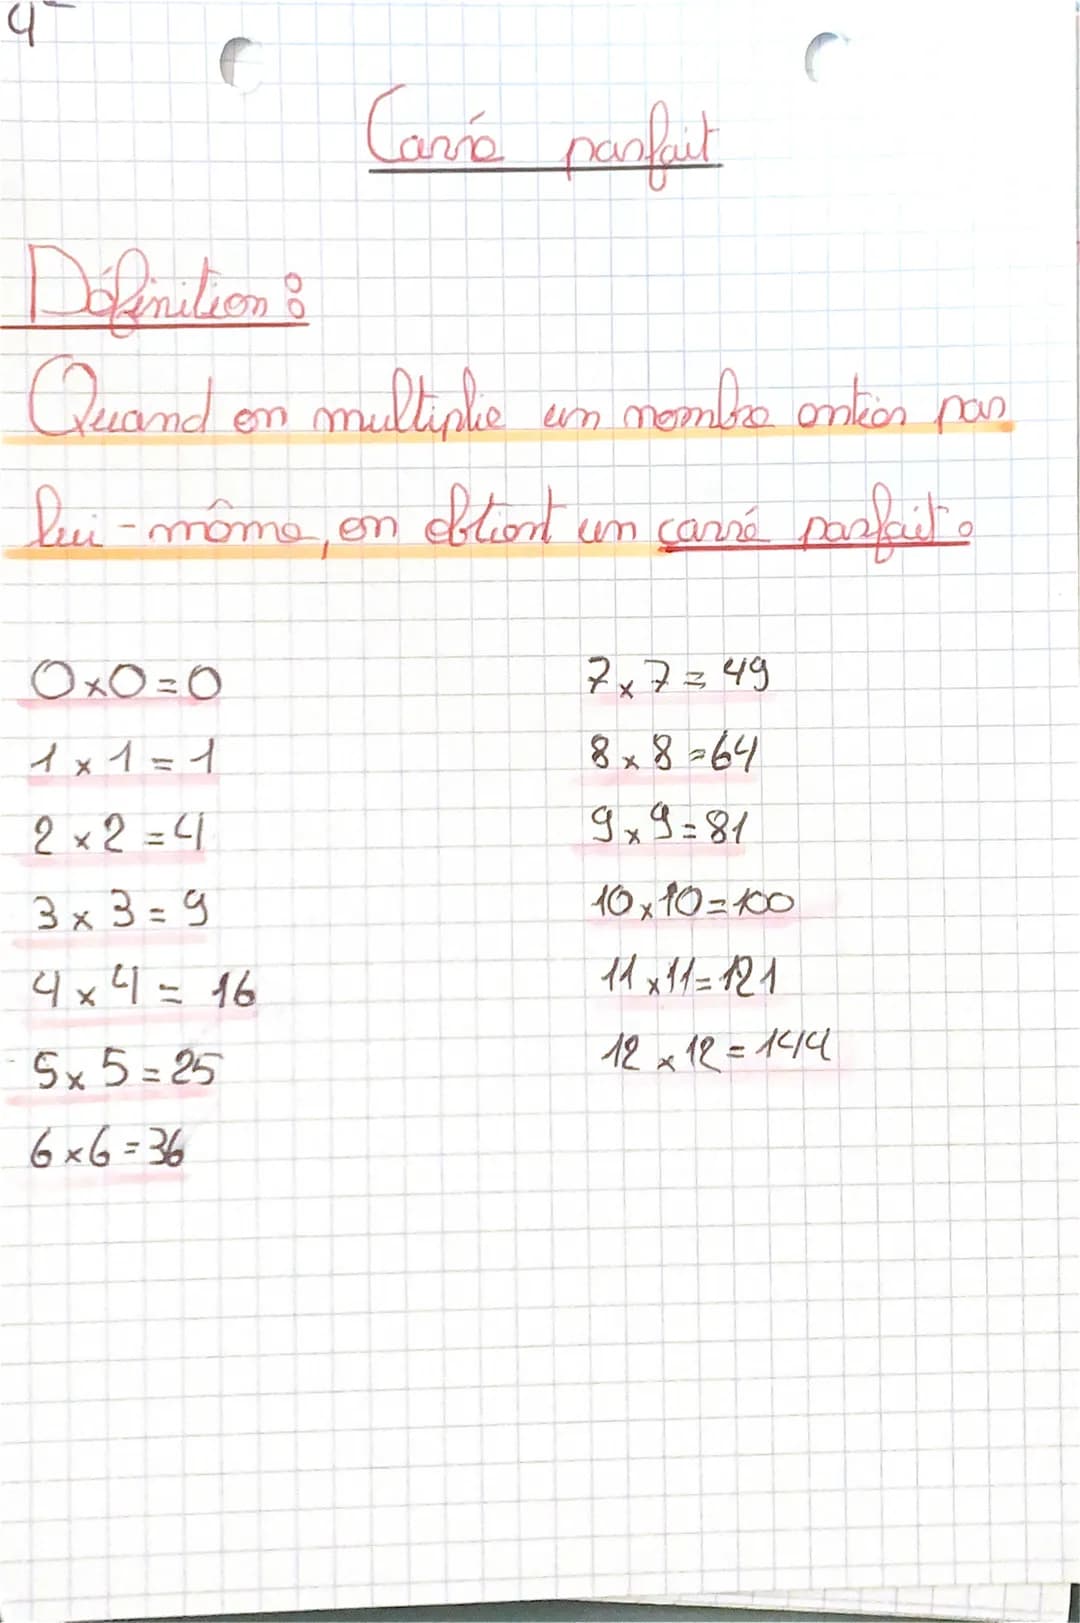 4
Carré parfait
Définition :
Quand on multiplie un nombre entier par
lui-même, on obtient un carré parfait.
0 x 0 = 0
1 x 1 = 1
2 x 2 = 4
3 x 3 = 9
4 x 4 = 16
5 x 5 = 25
6 x 6 = 36
7 x 7 = 49
8 x 8 = 64
9 x 9 = 81
10 x 10 = 100
11 x 11 = 121
12 x 12 = 144